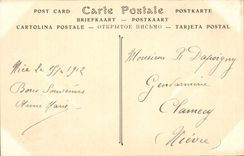 POST CARD Carte Postale POSTKARTE
BRIEFKAART - POSTKARTE BRIEFKAART - POSTKARTEN
CARTOLINA POSTALE - ОТКРЫТОЕ ПИСЬМО - TARJETA POSTAL
Nice le 1912
Bons Souvenirs
Marie
Monsieur R
Gendarmerie
Clamecy
Nièvre